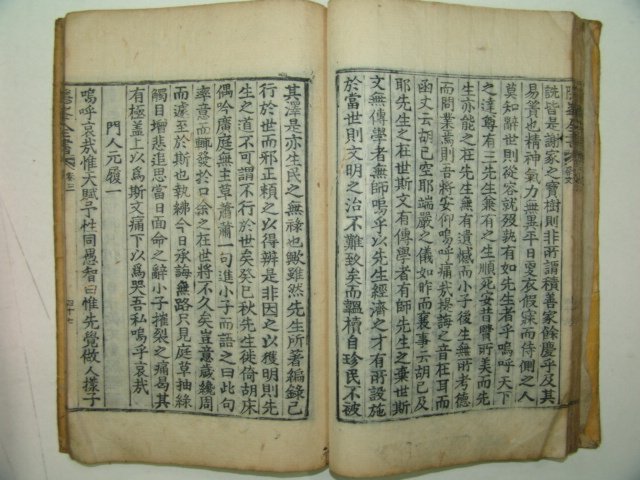 詵皆是謝家之寶樹則非所謂積善家餘慶乎及其
易簀也精神氣力無異平日更衣假寐而侍側之人
莫知辭世則從容就殁孰有如先生者乎嗚呼天下
之達尊有三先生兼有之生順死安昔賢所美而先
生亦能之在先生無有遺憾而小子後生無所考德
而問業焉則吾將安仰嗚呼痛哉操誨之音在耳而
函丈云胡已空耶端嚴之儀如昨而襄事云胡已及
耶先生之在世斯文有傳學者有師先生之棄世斯
文無傳學者無師嗚呼以先生經濟之才有所設施
於當世則文明之治不難致矣而韞櫝自珍民不被
其澤是亦生民之無祿也歟雖然先生所著編錄已
行於世而邪正賴之以得辨是非因之以獲明則先
生之道不可謂不行於世矣癸巳秋先生徙倚胡床
偶吟廣庭無主草蕭蕭一句進小子而語之曰此句
率意而輒發於口余之在世將不久矣豈意歲纔周
而遽至於斯也執紼今日承誨無路只見庭草抽綠
觸目增悲追思當日面命之辭小子摧裂之痛曷其
有極盖上以爲斯文痛下以爲哭吾私嗚呼哀哉
門人元履一
嗚呼哀哉惟天賦予杜同愚智曰惟先覺做人樣子
全書
卷三
四十七